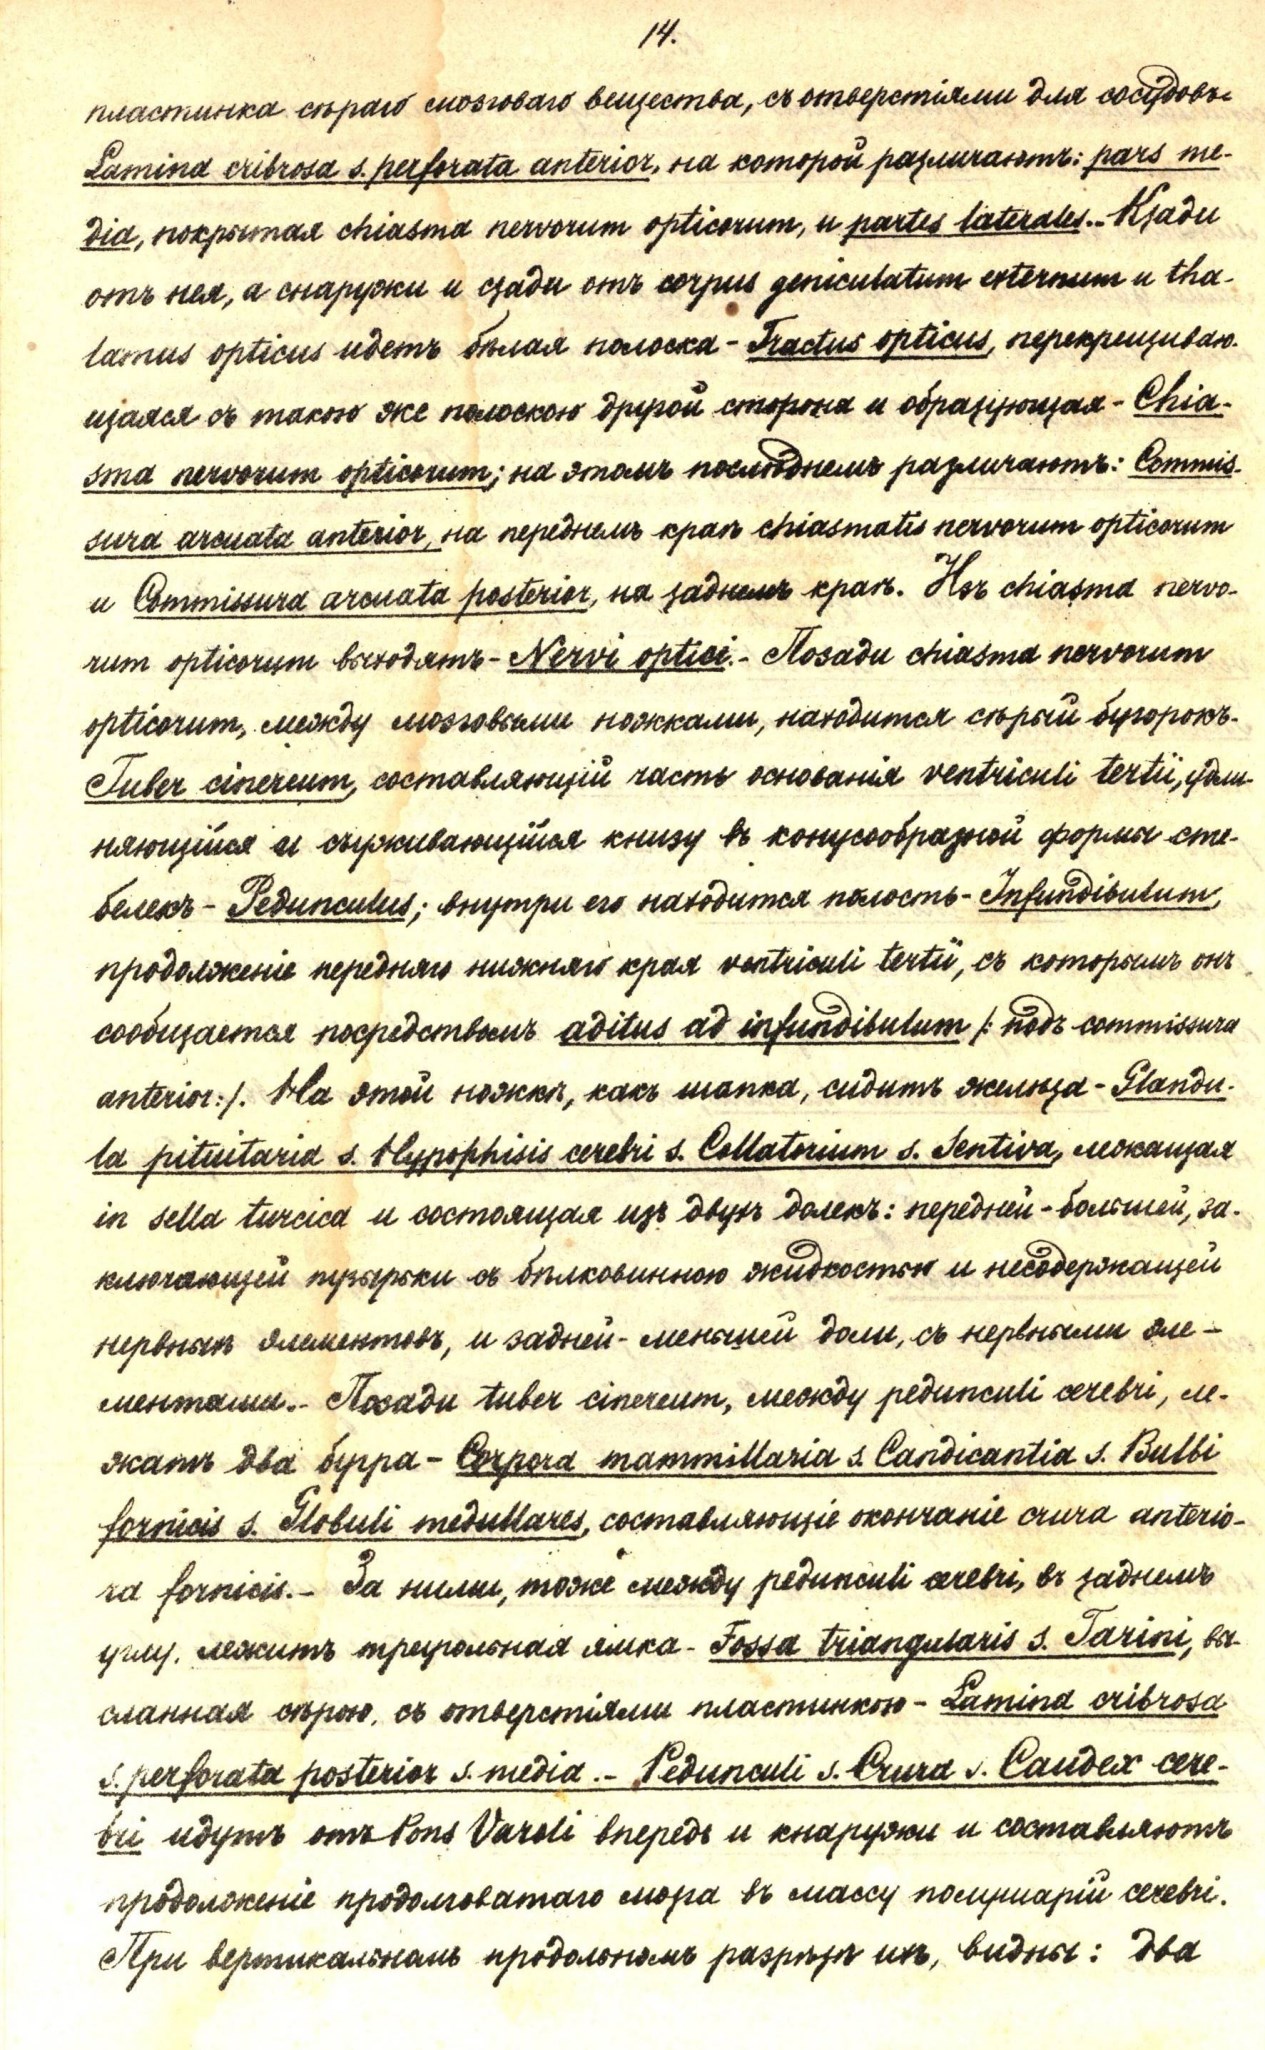 14.
пластинка сѣраго мозговаго вещества, съ отверстіями для сосудовъ
Lamina cribrosa s. perforata anterior, на которой различаютъ: pars me-
dia, покрытая chiasma nervorum opticorum, и partes laterales.- Кзади
отъ нея, а снаружи и сзади отъ corpus geniculatum externum и tha-
lamus opticus идетъ бѣлая полоска - Tractus opticus, перекрещиваю-
щаяся съ такою же полоскою другой стороны и образующая - Chia-
sma nervorum opticorum; на этомъ послѣднемъ различаютъ: Commis-
sura arcuata anterior, на переднемъ краѣ chiasmatis nervorum opticorum
и Commissura arcuata posterior, на заднемъ краѣ. Изъ chiasma nervo-
rum opticorum выходятъ - Nervi optici. - Позади chiasma nervorum
opticorum, между мозговыми ножками, находится сѣрый бугорокъ-
Tuber cinereum, составляющій часть основанія ventriculi tertii, удли-
няющійся и съуживающійся книзу въ конусообразной формы сте-
белекъ - Pedunculus; внутри его находится полость - Infundibulum,
продолженіе передняго нижняго края ventriculi tertii, съ которымъ онъ
сообщается посредствомъ aditus ad infundibulum /: подъ commissura
anterior:/. На этой ножкѣ, какъ шапка, сидитъ железа - Glandu-
la pituitaria s. Hypophisis cerebri s. Collatorium s. Sentiva, лежащая
in sella turcica и состоящая изъ двухъ долекъ: передней - большей, за-
ключающей пузырьки съ бѣлковинною жидкостью и несодержащей
нервныхъ элементовъ, и задней - меньшей доли, съ нервными эле-
ментами. - Позади tuber cinereum, между pedunculi cerebri, ле-
жатъ два бугра - Corpora mammillaria s. Candicantia s. Bulbi
fornicis s. Globuli medullares, составляющіе окончаніе crura anterio-
ra fornicis. - За ними, тоже между pedunculi cerebri, въ заднемъ
углу, лежитъ треугольная ямка - Fossa triangularis s. Tarini, вы-
сланная сѣрою, съ отверстіями пластинкою - Lamina cribrosa
s. perforata posterior s. media. - Pedunculi s. Crura s. Caudex cere-
bri идутъ отъ Pons Varoli впередъ и кнаружи и составляютъ
продолженіе продолговатаго мозга въ массу полушарій cerebri.
При вертикальномъ продольномъ разрѣзѣ ихъ, видны: два